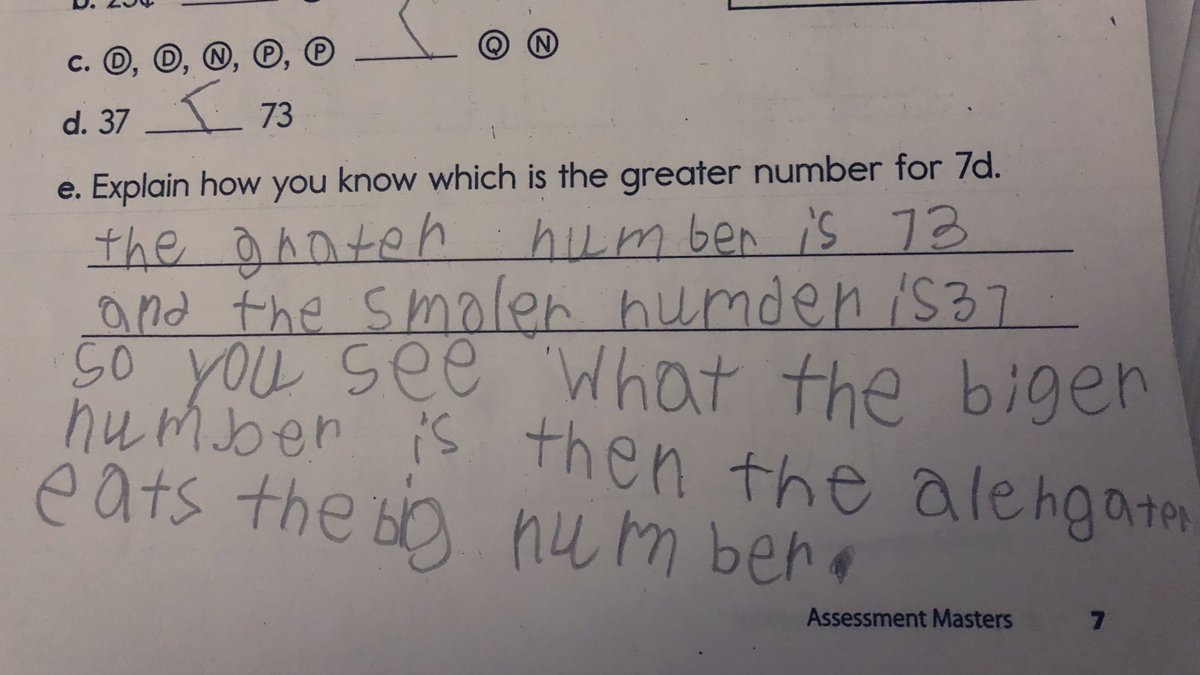 c. Ⓓ, Ⓓ, Ⓝ, Ⓟ, Ⓟ < Ⓠ Ⓝ
d. 37 < 73
e. Explain how you know which is the greater number for 7d.
the grater number is 73
and the smaler numder is 37
so you see What the biger
number is then the alehgater
eats the big number.
Assessment Masters 7